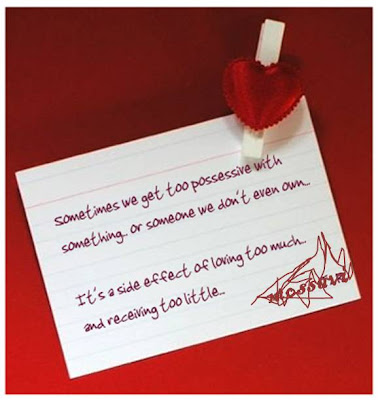 Sometimes we get too possessive with
something.. or someone we don't even own...
It's a side effect of loving too much...
and receiving too little...